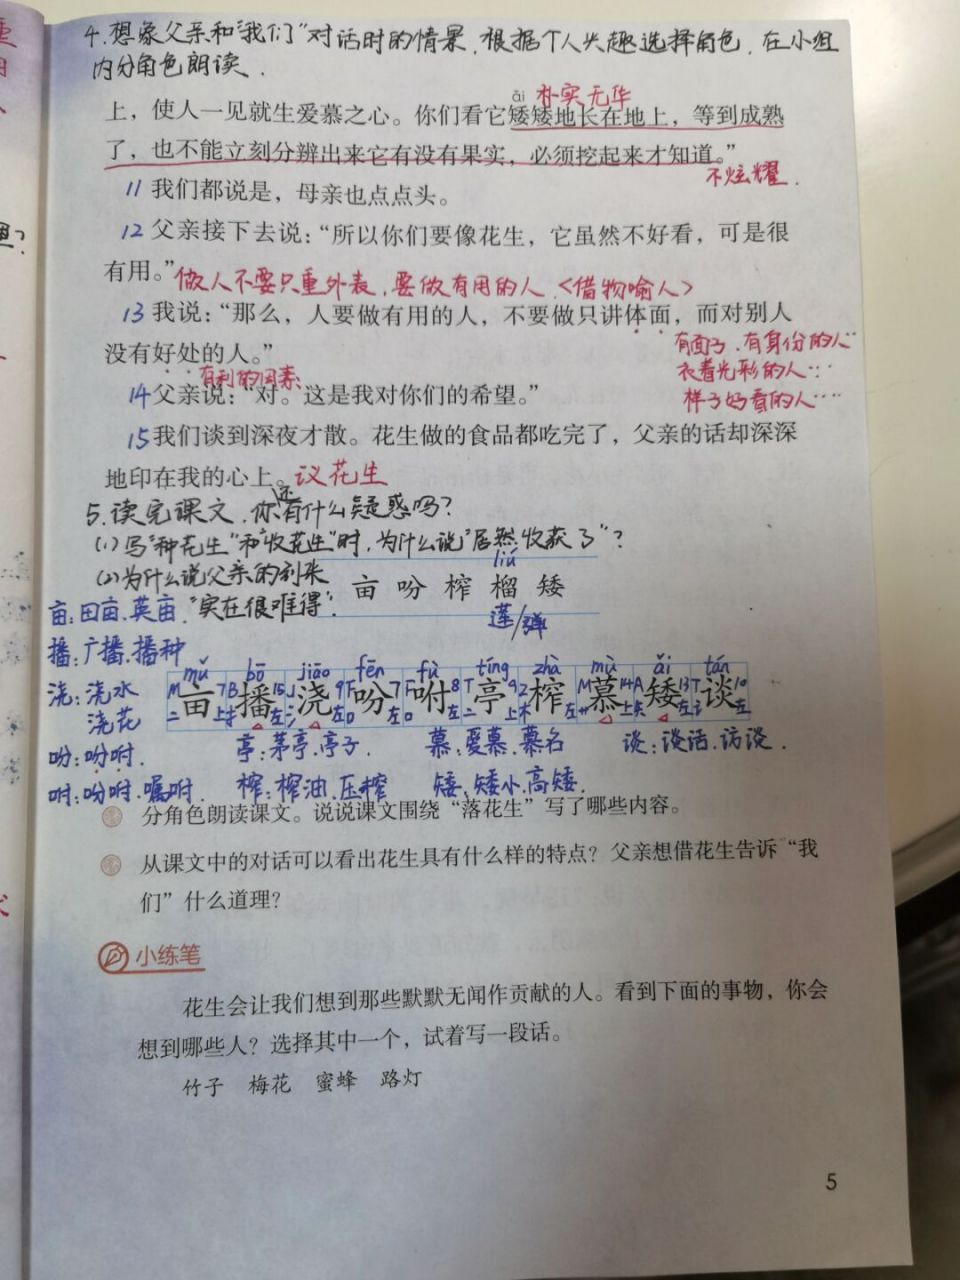 4.想象父亲和“我们”对话时的情景,根据个人兴趣选择角色,在小组
内分角色朗读.
ǎi 朴实无华
上，使人一见就生爱慕之心。你们看它矮矮地长在地上，等到成熟
了，也不能立刻分辨出来它有没有果实，必须挖起来才知道。”
不炫耀.
11 我们都说是，母亲也点点头。
12 父亲接下去说：“所以你们要像花生，它虽然不好看，可是很
有用。”做人不要只重外表,要做有用的人.<借物喻人>
13 我说：“那么，人要做有用的人，不要做只讲体面，而对别人
没有好处的人。”
有面子.有身份的人
衣着光彩的人…
样子好看的人…
有利的因素
14 父亲说：“对。这是我对你们的希望。”
15 我们谈到深夜才散。花生做的食品都吃完了，父亲的话却深深
地印在我的心上。议花生
5.读完课文,你还有什么疑惑吗?
(1)写“种花生”和“收花生”时,为什么说“居然收获了”?
(2)为什么说父亲的到来
“实在很难得”.
liú
亩 吩 榨 榴 矮
莲/弹
亩:田亩.英亩.
播:广播.播种
浇:浇水
浇花
mǔ bō jiāo fēn fù tíng zhà mù ǎi tán
亩 播 浇 吩 咐 亭 榨 慕 矮 谈
吩:吩咐.
亭:茅亭.亭子.
慕:爱慕.慕名
谈:谈话.访谈.
咐:吩咐.嘱咐.
榨:榨油.压榨
矮:矮小.高矮.
分角色朗读课文。说说课文围绕“落花生”写了哪些内容。
从课文中的对话可以看出花生具有什么样的特点？父亲想借花生告诉“我
们”什么道理？
小练笔
花生会让我们想到那些默默无闻作贡献的人。看到下面的事物，你会
想到哪些人？选择其中一个，试着写一段话。
竹子 梅花 蜜蜂 路灯
5